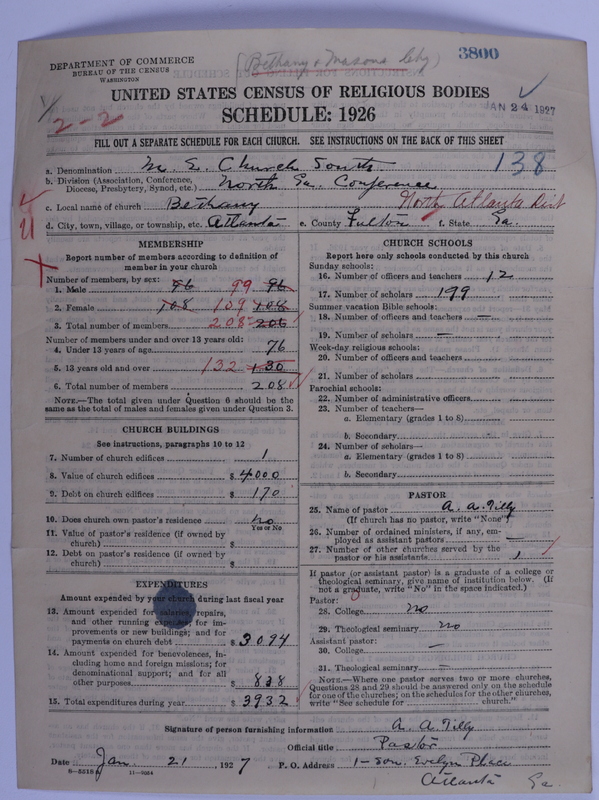 (Bethany & Masons Chg) 3800
DEPARTMENT OF COMMERCE
BUREAU OF THE CENSUS
WASHINGTON
UNITED STATES CENSUS OF RELIGIOUS BODIES
JAN 24 1927
SCHEDULE: 1926
2-2
FILL OUT A SEPARATE SCHEDULE FOR EACH CHURCH. SEE INSTRUCTIONS ON THE BACK OF THIS SHEET
138
a. Denomination M. E. Church South
b. Division (Association, Conference, Diocese, Presbytery, Synod, etc.) North Ga. Conference
c. Local name of church Bethany North Atlanta Dist
d. City, town, village, or township, etc. Atlanta e. County Fulton f. State Ga.
MEMBERSHIP
Report number of members according to definition of
member in your church
Number of members, by sex:
1. Male 96 99 96
2. Female 108 109 106
3. Total number of members 208 206
Number of members under and over 13 years old:
4. Under 13 years of age 76
5. 13 years old and over 132 130
6. Total number of members 208
NOTE.—The total given under Question 6 should be the
same as the total of males and females given under Question 3.
CHURCH BUILDINGS
See instructions, paragraphs 10 to 12
7. Number of church edifices 1
8. Value of church edifices $4000
9. Debt on church edifices $170
10. Does church own pastor's residence No
Yes or No
11. Value of pastor's residence (if owned by
church) $
12. Debt on pastor's residence (if owned by
church) $
EXPENDITURES
Amount expended by your church during last fiscal year
13. Amount expended for salaries, repairs,
and other running expenses; for im-
provements or new buildings; and for
payments on church debt $3094
14. Amount expended for benevolences, in-
cluding home and foreign missions; for
denominational support; and for all
other purposes $838
15. Total expenditures during year $3932
CHURCH SCHOOLS
Report here only schools conducted by this church
Sunday schools:
16. Number of officers and teachers 12
17. Number of scholars 199
Summer vacation Bible schools:
18. Number of officers and teachers —
19. Number of scholars —
Week-day religious schools:
20. Number of officers and teachers
21. Number of scholars
Parochial schools:
22. Number of administrative officers
23. Number of teachers—
a. Elementary (grades 1 to 8)
b. Secondary
24. Number of scholars—
a. Elementary (grades 1 to 8)
b. Secondary
PASTOR
25. Name of pastor A. A. Tilly
(If church has no pastor, write "None")
26. Number of ordained ministers, if any, em-
ployed as assistant pastors —
27. Number of other churches served by the
pastor or his assistants 1
If pastor (or assistant pastor) is a graduate of a college or
theological seminary, give name of institution below. (If
not a graduate, write "No" in the space indicated.)
Pastor:
28. College No
29. Theological seminary No
Assistant pastor:
30. College —
31. Theological seminary —
NOTE.—Where one pastor serves two or more churches,
Questions 28 and 29 should be answered only on the schedule
for one of the churches; on the schedules for the other churches,
write "See schedule for church."
Signature of person furnishing information A. A. Tilly
Official title Pastor
Date Jan 21 1927 P. O. Address Evelyn Place
8—5518 11—9064 Atlanta Ga.